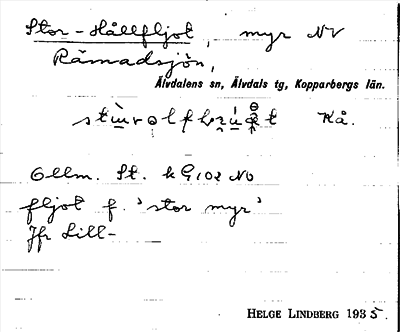 Stor-Hållfljot, myr NV
Råmadsjön,
Älvdalens sn, Älvdals tg, Kopparbergs län.
Kå.
Ollm. St. k G, 102 NO
fljot f. 'stor myr'
Jfr Lill-
HELGE LINDBERG 1935.